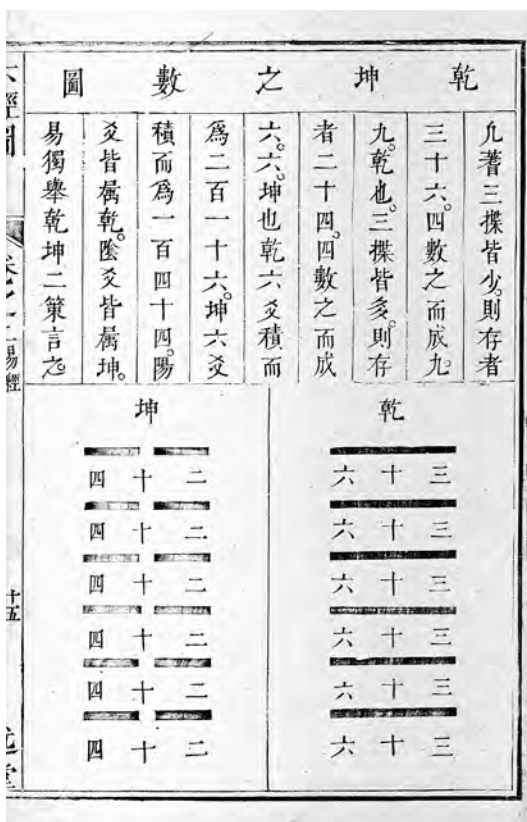 乾坤之數圖
凢蓍三揲皆少。則存者
三十六。四數之而成九。
九。乾也。三揲皆多。則存
者二十四。四數之而成
六。六。坤也乾六爻積而
為二百一十六。坤六爻
積而為一百四十四。陽
爻皆属乾。隂爻皆属坤。
易獨舉乾坤二策言之。
乾
三十六
三十六
三十六
三十六
三十六
三十六
坤
二十四
二十四
二十四
二十四
二十四
二十四
易經
十五